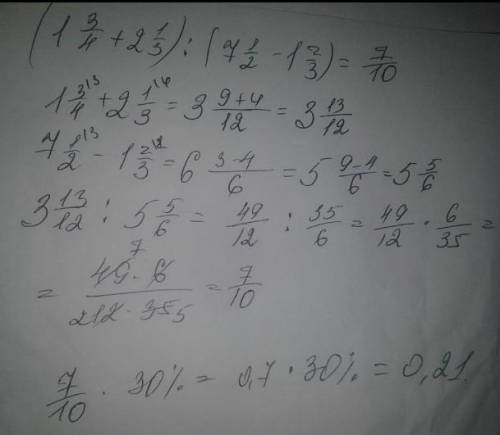 (1 3/4 + 2 1/3) : (7 1/2 - 1 2/3) = 7/10
1 3/4 + 2 1/3 = 3 9+4/12 = 3 13/12
7 1/2 - 1 2/3 = 6 3-4/6 = 5 9-4/6 = 5 5/6
3 13/12 : 5 5/6 = 49/12 : 35/6 = 49/12 · 6/35 =
= 49·6/12·35 = 7/10
7/10 · 30% = 0,7 · 30% = 0,21